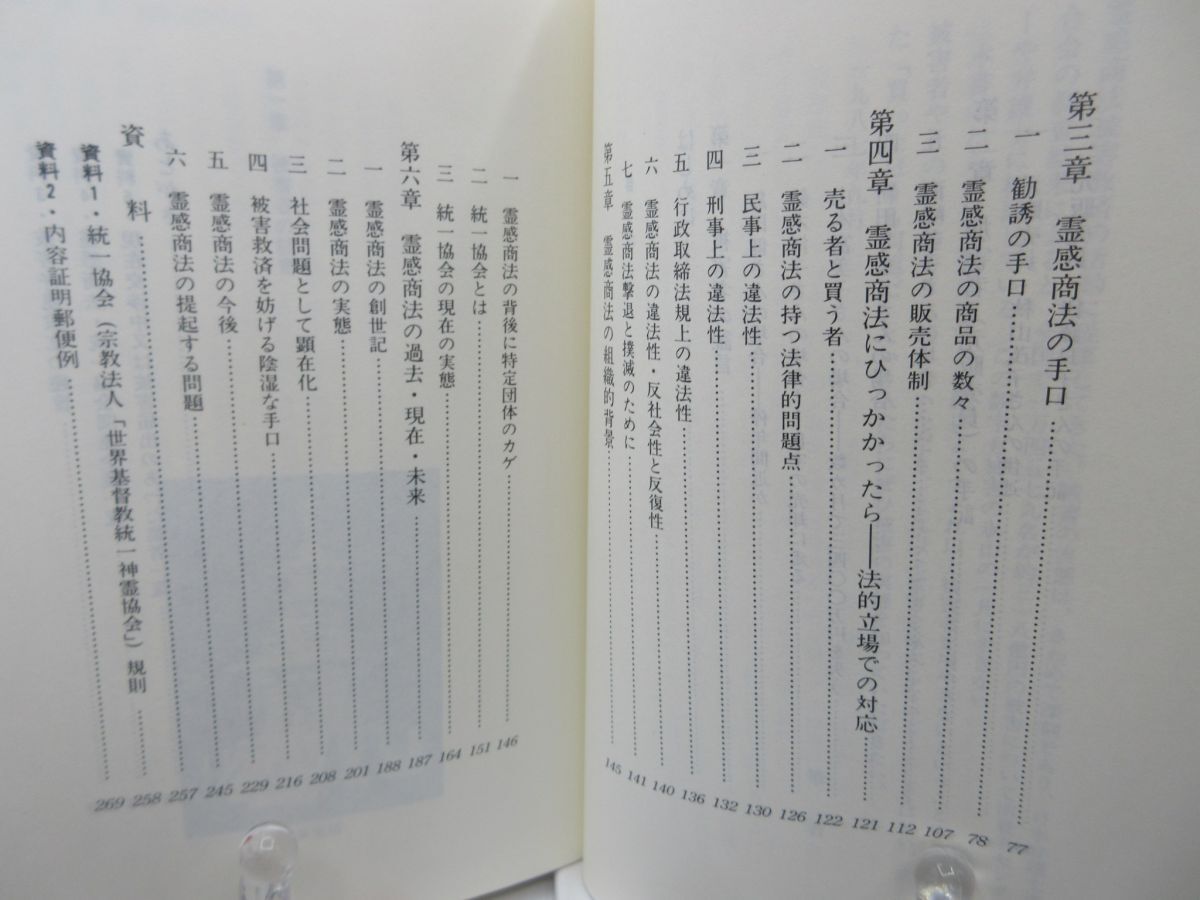 第三章 霊感商法の手口……77
一 勧誘の手口……78
二 霊感商法の商品の数々……107
三 霊感商法の販売体制……112
第四章 霊感商法にひっかかったら――法的立場での対応……121
一 売る者と買う者……122
二 霊感商法の持つ法律的問題点……126
三 民事上の違法性……130
四 刑事上の違法性……132
五 行政取締法規上の違法性……136
六 霊感商法の違法性・反社会性と反復性……140
七 霊感商法撃退と撲滅のために……141
第五章 霊感商法の組織的背景……145
一 霊感商法の背後に特定団体のカゲ……146
二 統一協会とは……151
三 統一協会の現在の実態……164
第六章 霊感商法の過去・現在・未来……187
一 霊感商法の創世記……188
二 霊感商法の実態……201
三 社会問題として顕在化……208
四 被害救済を妨げる陰湿な手口……216
五 霊感商法の今後……229
六 霊感商法の提起する問題……245
資料……257
資料1・統一協会(宗教法人「世界基督教統一神霊協会」)規則……258
資料2・内容証明郵便例……269